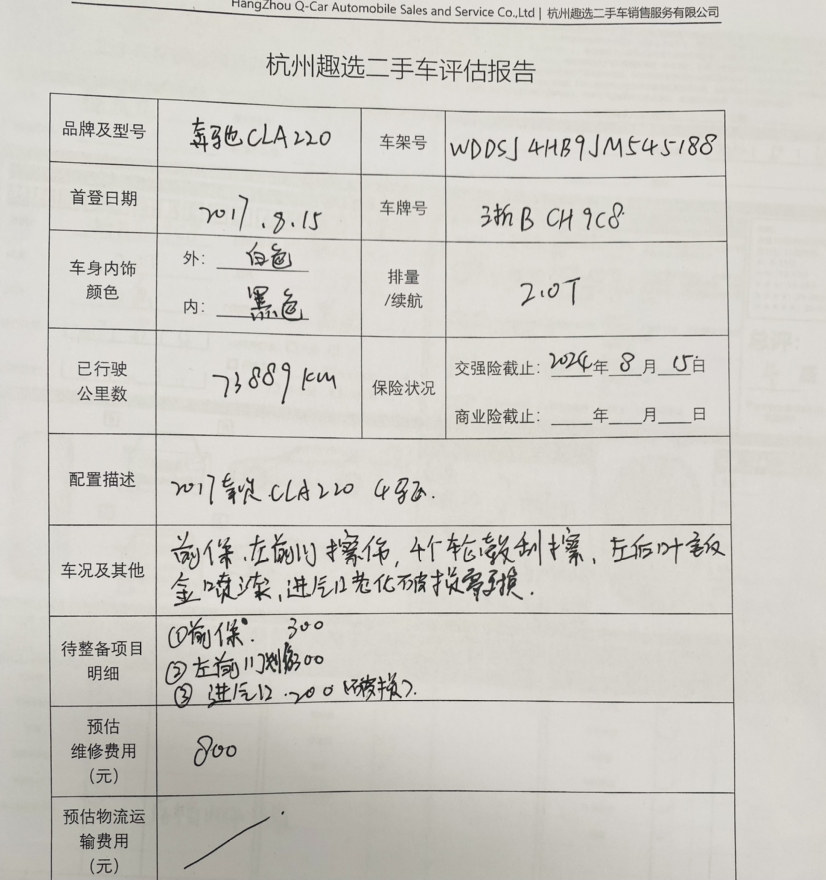 HangZhou Q-Car Automobile Sales and Service Co.,Ltd | 杭州趣选二手车销售服务有限公司
杭州趣选二手车评估报告
品牌及型号 奔驰CLA220 车架号 WDDSJ4HB9JM545188
首登日期 2017.8.15 车牌号 浙B CH9C8
车身内饰颜色 外: 白色 排量/续航 2.0T
内: 黑色
已行驶公里数 73889km 保险状况 交强险截止: 2024年8月15日
商业险截止: 年 月 日
配置描述 2017奔驰CLA220
车况及其他 前保.左前门擦伤,4个轮毂刮擦、左后叶钣
金喷漆、进气口老化破损
待整备项目明细 ①前保. 300
②左前门划伤300
③进气口.200(破损).
预估维修费用(元) 800
预估物流运输费用(元)